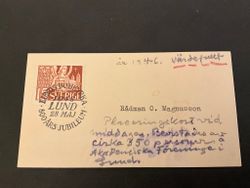 år 1946. Värdefullt
SVERIGE
LUND
28 MAJ
ÅRS JUBILEUM
Rådman O. Magnusson
Placeringskort vid
middagen. Bevistades av
cirka 350 personer å
Akademiska Föreningen i
Lund